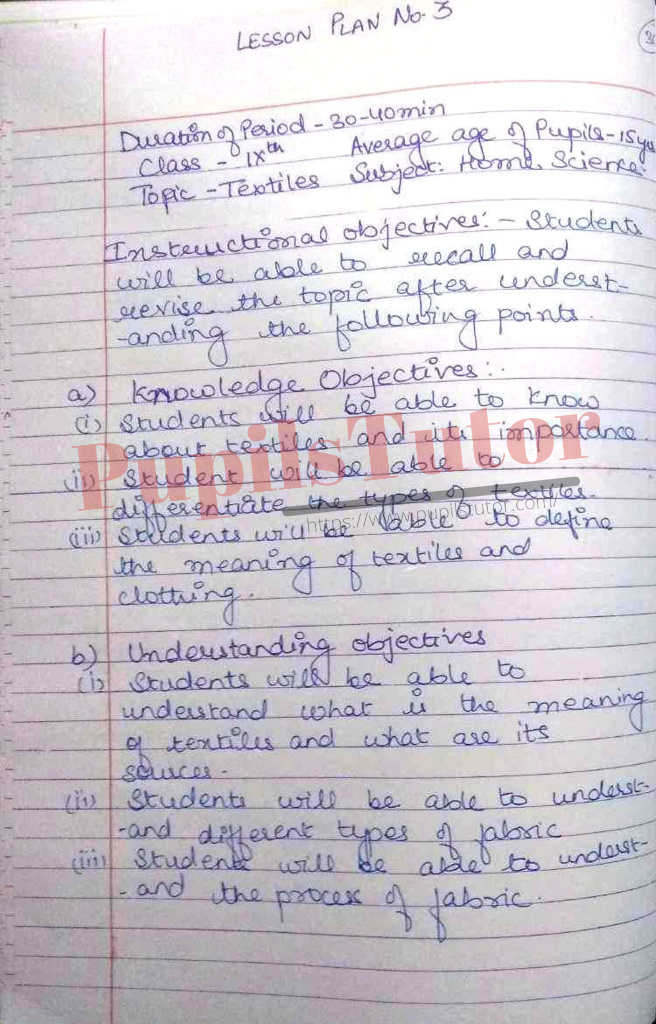 LESSON PLAN No. 3
Duration of Period - 30-40min
Class - IXth Average age of Pupils - 15yrs
Topic - Textiles Subject: Home Science.
Instructional objectives: - Students
will be able to recall and
revise the topic after underst-
-anding the following points.
a) Knowledge Objectives:.
(i) Students will be able to know
about textiles and its importance.
(ii) Student will be able to
differentiate the types of textiles.
(iii) Students will be able to define
the meaning of textiles and
clothing.
b) Understanding objectives
(i) Students will be able to
understand what is the meaning
of textiles and what are its
sources.
(ii) Students will be able to underst-
-and different types of fabric
(iii) Students will be able to underst-
-and the process of fabric.
PupilsTutor
https://www.pupilstutor.com